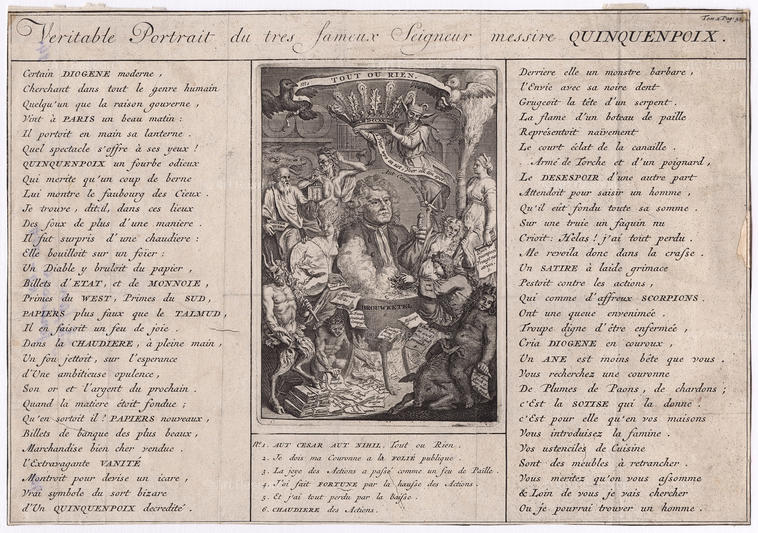 Tom 2. Pag.
Veritable Portrait du tres fameux Seigneur messire QUINQUENPOIX.
Certain DIOGENE moderne,
Cherchant dans tout le genre humain
Quelqu'un que la raison gouverne,
Vint à PARIS un beau matin:
Il portoit en main sa lanterne.
Quel spectacle s'offre à ses yeux!
QUINQUENPOIX un fourbe odieux
Qui merite qu'un coup de berne
Lui montre le faubourg des Cieux.
Je trouve, dit:il, dans ces lieux
Des foux de plus d'une maniere.
Il fut surpris d'une chaudiere:
Elle bouilloit sur un foier:
Un Diable y bruloit du papier,
Billets d'ETAT, et de MONNOIE,
Primes du WEST, Primes du SUD,
PAPIERS plus faux que le TALMUD,
Il en faisoit un feu de joie.
Dans la CHAUDIERE, à pleine main,
Un fou jettoit, sur l'esperance
d'Une ambitieuse opulence,
Son or et l'argent du prochain.
Quand la matiere étoit fondue;
Qu'en sortoit il? PAPIERS nouveaux,
Billets de banque des plus beaux,
Marchandise bien cher vendue.
l'Extravagante VANITÉ
Montroit pour devise un icare,
Vrai symbole du sort bizare
d'Un QUINQUENPOIX decredité.
TOUT OU RIEN.
BROUWKETEL
Nº1. AUT CESAR AUT NIHIL, Tout ou Rien.
2. Je dois ma Couronne a la FOLIE publique.
3. La joye des Actions a passé comme un feu de Paille.
4. J'ai fait FORTUNE par la hausse des Actions.
5. Et j'ai tout perdu par la baisse.
6. CHAUDIERE des Actions.
Derriere elle un monstre barbare,
l'Envie avec sa noire dent
Grugeoit la tête d'un serpent.
La flame d'un boteau de paille
Représentoit naivement
Le court éclat de la canaille.
Armé de Torche et d'un poignard,
Le DESESPOIR d'une autre part
Attendoit pour saisir un homme,
Qu'il eût fondu toute sa somme.
Sur une truie un faquin nu
Crioit: Hélas! j'ai tout perdu.
Me revoila donc dans la crasse.
Un SATIRE à laide grimace
Pestoit contre les actions,
Qui comme d'affreux SCORPIONS.
Ont une queue envenimée.
Troupe digne d'être enfermée,
Cria DIOGENE en couroux,
Un ANE est moins bête que vous.
Vous recherchez une couronne
De Plumes de Paons, de chardons;
c'Est la SOTISE qui la donne.
c'Est pour elle qu'en vos maisons
Vous introduisez la famine.
Vos ustenciles de Cuisine
Sont des meubles à retrancher.
Vous meritez qu'on vous assomme
& Loin de vous je vais chercher
Ou je pourrai trouver un homme.